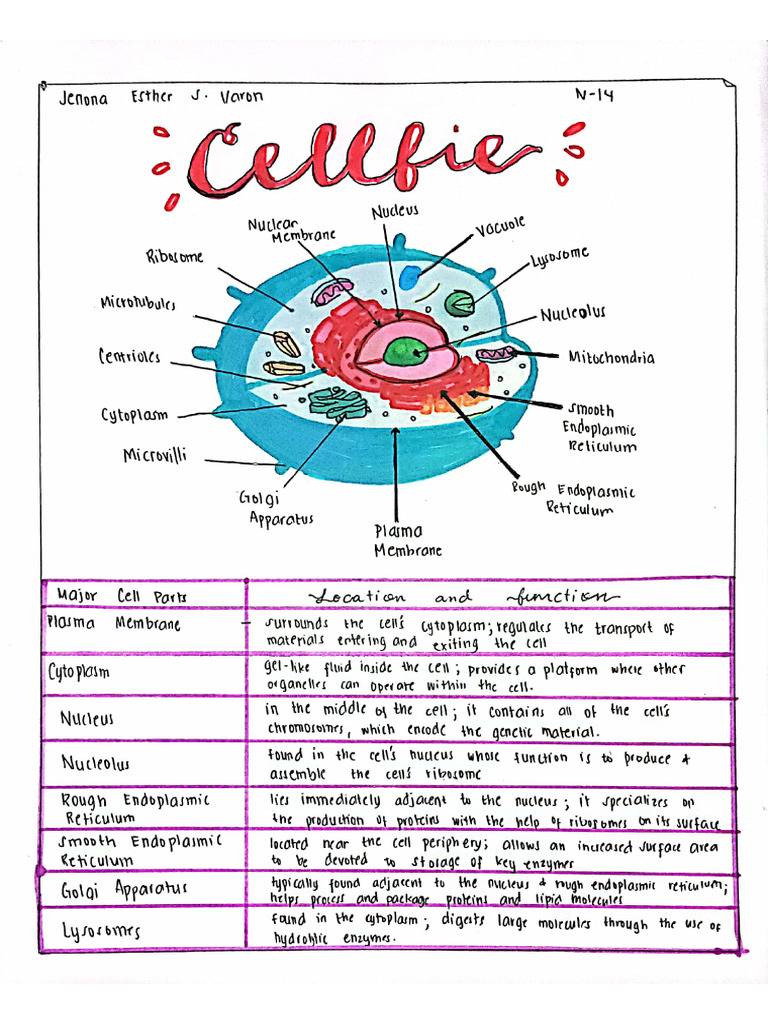 Jenona Esther S. Varon N-14
Cellfie
Nucleus
Nuclear
Membrane
Vacuole
Ribosome
Lysosome
Microtubules
Nucleolus
Centrioles
Mitochondria
Cytoplasm
Smooth
Endoplasmic
Reticulum
Microvilli
Rough Endoplasmic
Reticulum
Golgi
Apparatus
Plasma
Membrane
Major Cell Parts Location and function
Plasma Membrane – surrounds the cell's cytoplasm; regulates the transport of
materials entering and exiting the cell
Cytoplasm gel-like fluid inside the cell; provides a platform where other
organelles can operate within the cell.
Nucleus in the middle of the cell; it contains all of the cell's
chromosomes, which encode the genetic material.
Nucleolus found in the cell's nucleus whose function is to produce &
assemble the cell's ribosome
Rough Endoplasmic lies immediately adjacent to the nucleus; it specializes on
Reticulum the production of proteins with the help of ribosomes on its surface
Smooth Endoplasmic located near the cell periphery; allows an increased surface area
Reticulum to be devoted to storage of key enzymes
Golgi Apparatus typically found adjacent to the nucleus & rough endoplasmic reticulum;
helps process and package proteins and lipid molecules
Lysosomes found in the cytoplasm; digests large molecules through the use of
hydrolitic enzymes.